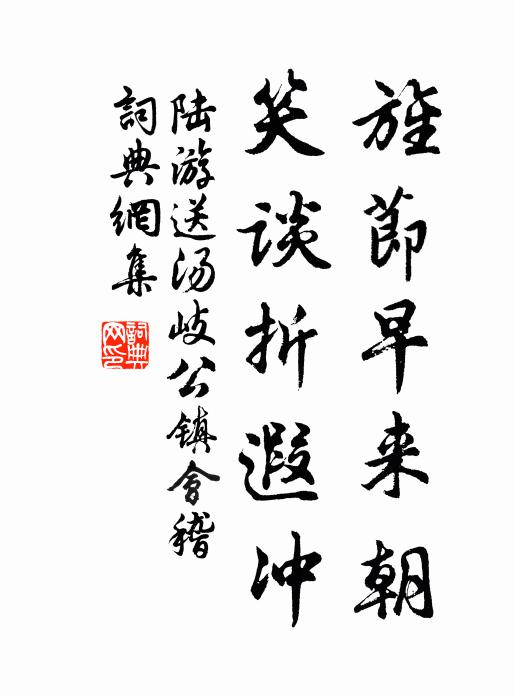 旌節早来朝
笑談折遐冲
陆游送汤岐公镇會稽
詞典網集
詞典
网印